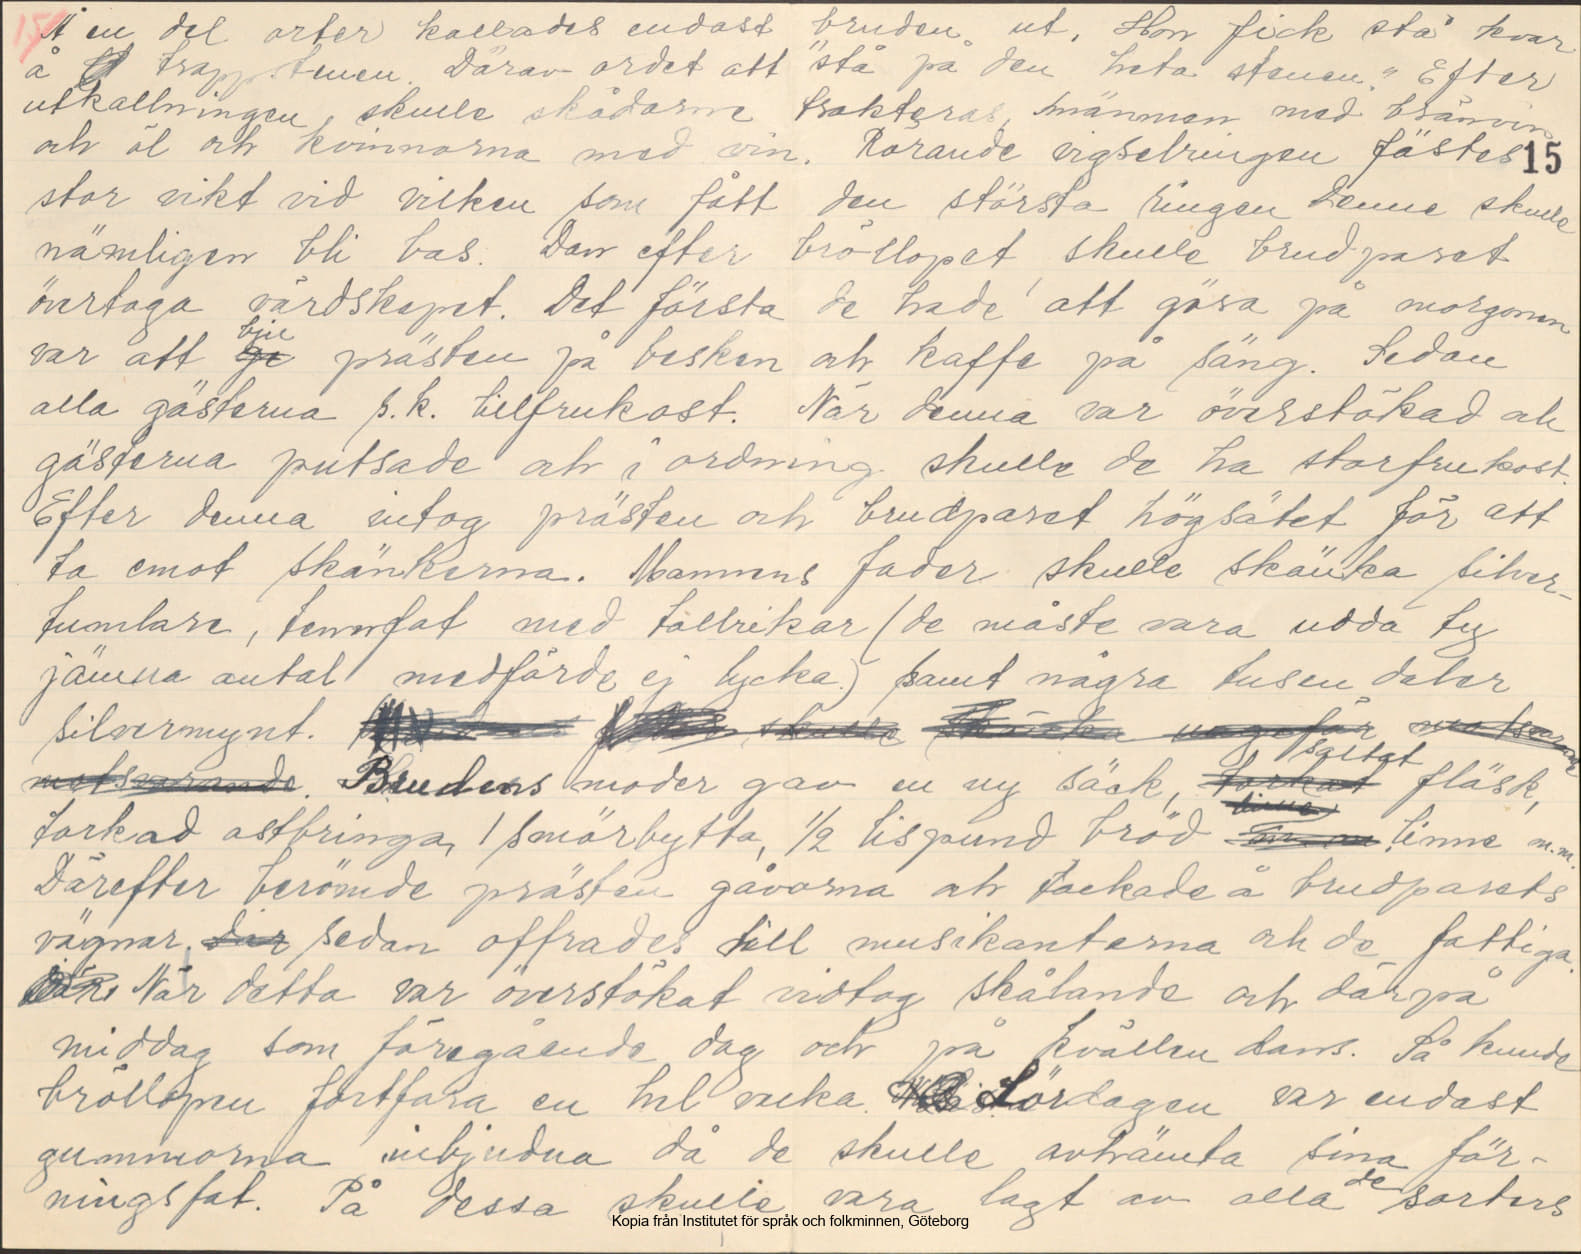 15
Å en del orter kallades endast bruden ut. Hon fick stå kvar
å trappstenen. Därav ordet att "stå på den heta stenen." Efter
utkallningen skulle skådarne trakteras, männen med brännvin
och öl och kvinnorna med vin. Rörande vigselringen fästes
15
stor vikt vid vilken som fått den största ringen Denne skulle
nämligen bli bas. Dan efter bröllopet skulle brudparet
övertaga värdskapet. Det första de hade att göra på morgonen
var att ge bju prästen på besken och kaffe på säng. Sedan
alla gästerna s.k. lillfrukost. När denna var överstökad och
gästerna putsade och i ordning skulle de ha storfrukost.
Efter denna intog prästen och brudparet högsätet för att
ta emot skänkerna. Mannens fader skulle skänka silver-
tumlare, tennfat med tallrikar (de måste vara udda ty
jämna antal medförde ej lycka.) samt några tusen daler
silvermynt. skulle skänka ungefär motsvarande
motsvarande. Brudens moder gav en ny säck, torkat saltat fläsk,
torkad ostbringa, 1 smörbytta, 1/2 lispund bröd linne m.m. linne m.m.
Därefter berömde prästen gåvorna och tackade å brudparets
vägnar. Där sedan offrades till musikanterna och de fattiga.
När detta var överstökat vidtog skålande och därpå
middag som föregående dag och på kvällen dans. Så kunde
bröllopen fortfara en hel vecka. Lördagen var endast
gummorna inbjudna då de skulle avhämta sina för-
ningsfat. På dessa skulle vara lagt av alla de sorters
Kopia från Institutet för språk och folkminnen, Göteborg